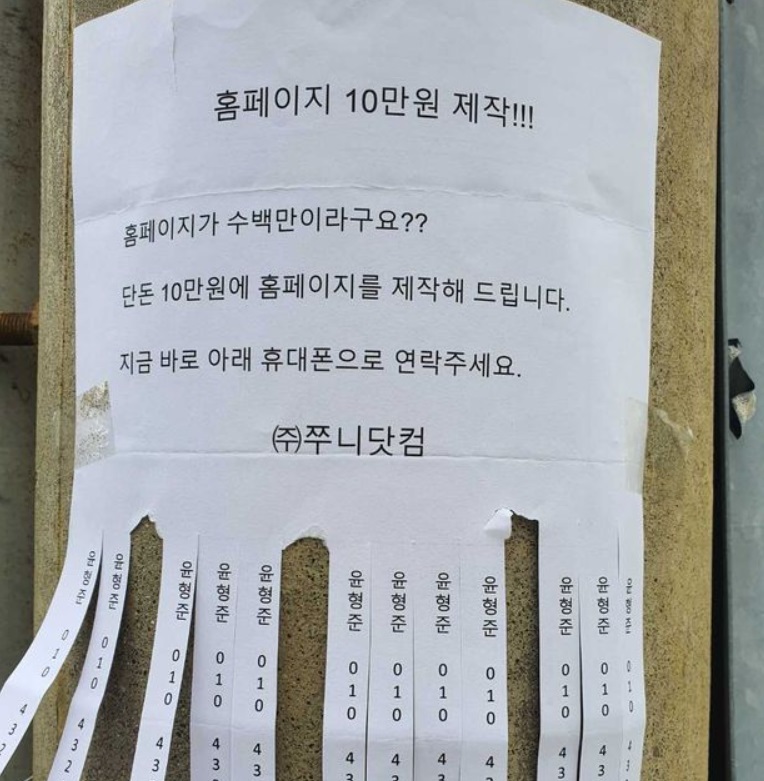 홈페이지 10만원 제작!!!
홈페이지가 수백만이라구요??
단돈 10만원에 홈페이지를 제작해 드립니다.
지금 바로 아래 휴대폰으로 연락주세요.
㈜쭈니닷컴
윤형준 010 432
윤형준 010 432
윤형준 010 43
윤형준 010 43
윤형준 010 43
윤형준 010 43
윤형준 010 43
윤형준 010 43
윤형준 010 4
윤형준 010 43
윤형준 010 43
윤형준 010 43